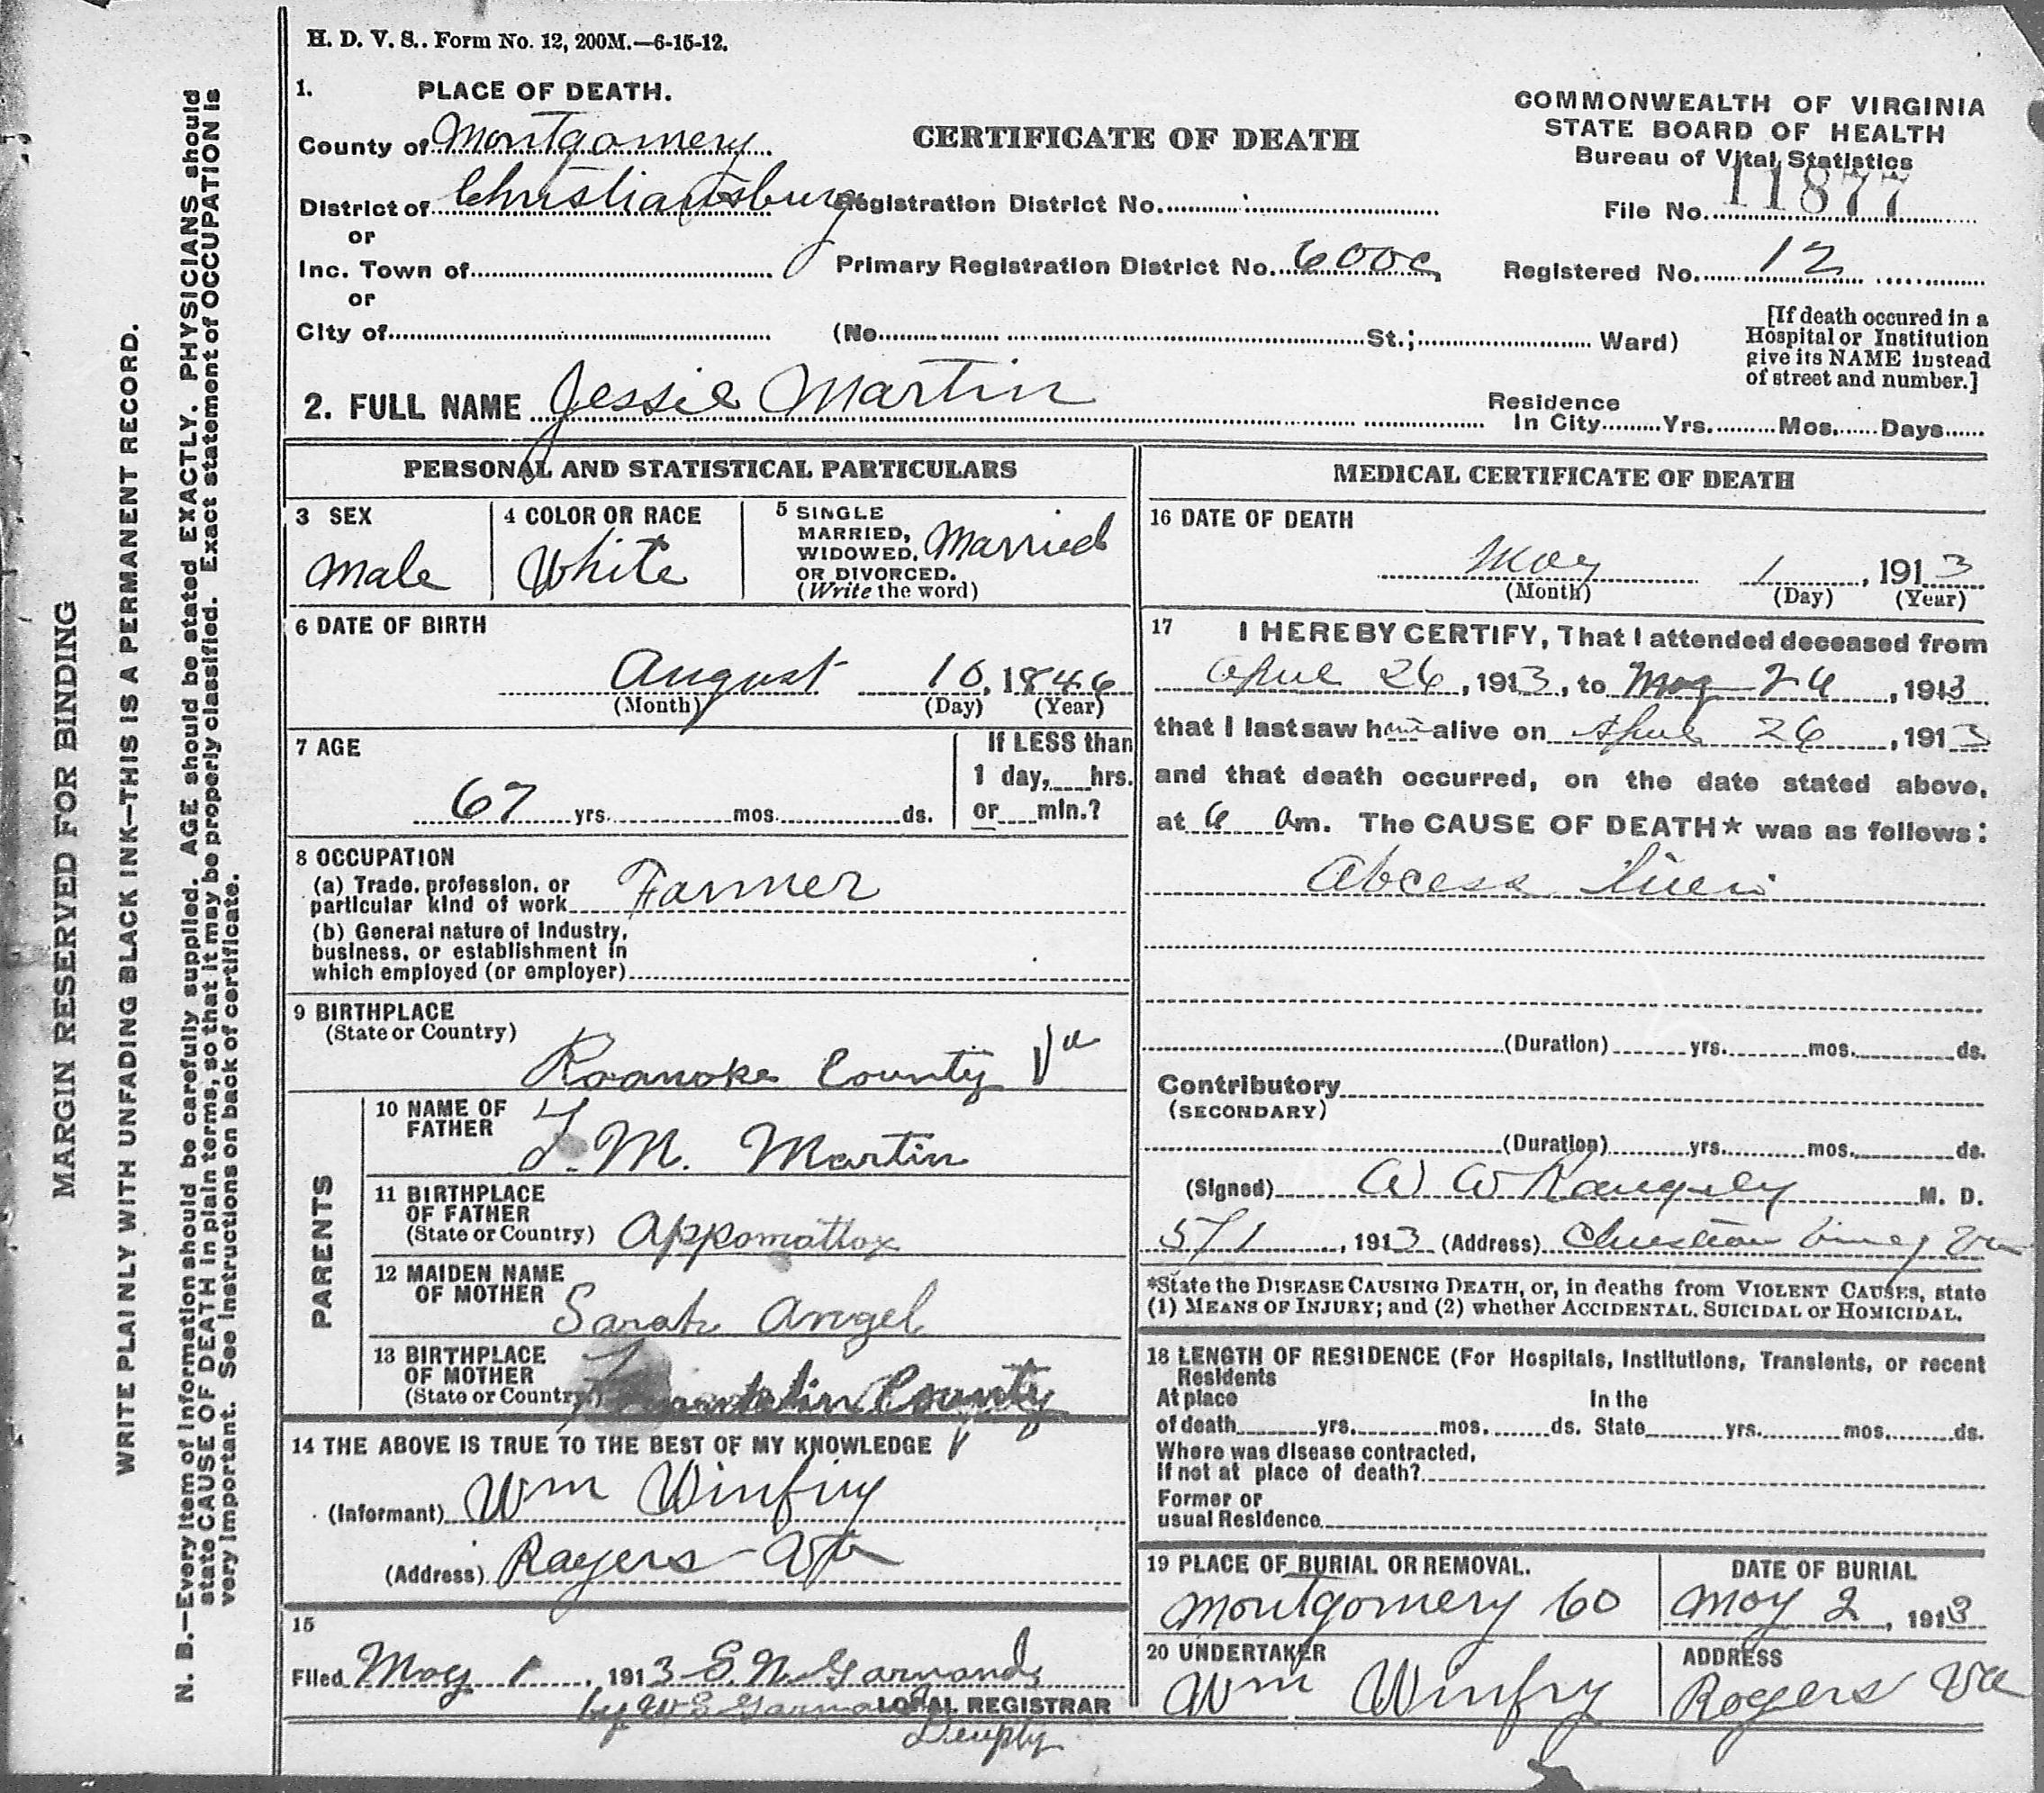 H. D. V. S.. Form No. 12, 200M.—6-15-12.
1. PLACE OF DEATH.
County of Montgomery
District of Christiansburg
or
Inc. Town of
or
City of
CERTIFICATE OF DEATH
Registration District No.
Primary Registration District No. 600c
(No. St.; Ward)
COMMONWEALTH OF VIRGINIA
STATE BOARD OF HEALTH
Bureau of Vital Statistics
File No. 11877
Registered No. 12
[If death occured in a
Hospital or Institution
give its NAME instead
of street and number.]
2. FULL NAME Jessie Martin
Residence
In City Yrs. Mos. Days
PERSONAL AND STATISTICAL PARTICULARS
3 SEX
Male
4 COLOR OR RACE
White
5 SINGLE
MARRIED,
WIDOWED,
OR DIVORCED.
(Write the word)
Married
6 DATE OF BIRTH
August 10, 1846
(Month) (Day) (Year)
7 AGE
67 yrs. mos. ds.
If LESS than
1 day, hrs.
or min.?
8 OCCUPATION
(a) Trade, profession, or
particular kind of work Farmer
(b) General nature of Industry,
business, or establishment in
which employed (or employer)
9 BIRTHPLACE
(State or Country)
Roanoke County Va
PARENTS
10 NAME OF
FATHER
T. M. Martin
11 BIRTHPLACE
OF FATHER
(State or Country) Appomattox
12 MAIDEN NAME
OF MOTHER
Sarah Angel
13 BIRTHPLACE
OF MOTHER
(State or Country) Franklin County
14 THE ABOVE IS TRUE TO THE BEST OF MY KNOWLEDGE
(Informant) Wm Winfry
(Address) Rogers Va
15
Filed May 1, 1913 E. N. Garnand
by W E Garnand LOCAL REGISTRAR
Deuply
MEDICAL CERTIFICATE OF DEATH
16 DATE OF DEATH
May 1, 1913
(Month) (Day) (Year)
17 I HEREBY CERTIFY, That I attended deceased from
April 26, 1913, to May 26, 1913
that I last saw him alive on April 26, 1913
and that death occurred, on the date stated above,
at 6 am. The CAUSE OF DEATH* was as follows:
Abcess
(Duration) yrs. mos. ds.
Contributory
(SECONDARY)
(Duration) yrs. mos. ds.
(Signed) W W Kangeley M. D.
5/1, 1913 (Address) Va
*State the DISEASE CAUSING DEATH, or, in deaths from VIOLENT CAUSES, state
(1) MEANS OF INJURY; and (2) whether ACCIDENTAL, SUICIDAL or HOMICIDAL.
18 LENGTH OF RESIDENCE (For Hospitals, Institutions, Transients, or recent
Residents
At place In the
of death yrs. mos. ds. State yrs. mos. ds.
Where was disease contracted,
If not at place of death?
Former or
usual Residence
19 PLACE OF BURIAL OR REMOVAL.
Montgomery Co
DATE OF BURIAL
May 2, 1913
20 UNDERTAKER
Wm Winfry
ADDRESS
Rogers Va
MARGIN RESERVED FOR BINDING
WRITE PLAINLY WITH UNFADING BLACK INK—THIS IS A PERMANENT RECORD.
N. B.—Every item of information should be carefully supplied. AGE should be stated EXACTLY. PHYSICIANS should
state CAUSE OF DEATH in plain terms, so that it may be properly classified. Exact statement of OCCUPATION is
very important. See instructions on back of certificate.